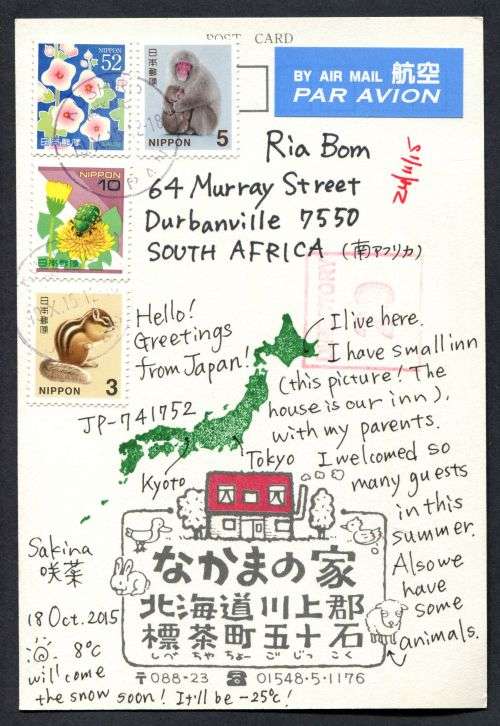 POST CARD
NIPPON
52
日本郵便
日本郵便
5
NIPPON
BY AIR MAIL 航空
PAR AVION
Ria Bom
64 Murray Street
Durbanville 7550
SOUTH AFRICA (南アフリカ)
24/11/15
NIPPON
10
日本郵便
日本郵便
3
NIPPON
Hello!
Greetings
from Japan!
JP-741752
I live here.
I have small inn
(this picture! The
house is our inn),
with my parents.
I welcomed so
many guests
in this
summer.
Also we
have
some
animals.
Kyoto
Tokyo
なかまの家
北海道川上郡
標茶町五十石
しべちゃちょーごじっこく
〒088-23 ☎01548-5-1176
Sakina
咲菜
18 Oct. 2015
8℃
will come
the snow soon! It'll be -25℃!